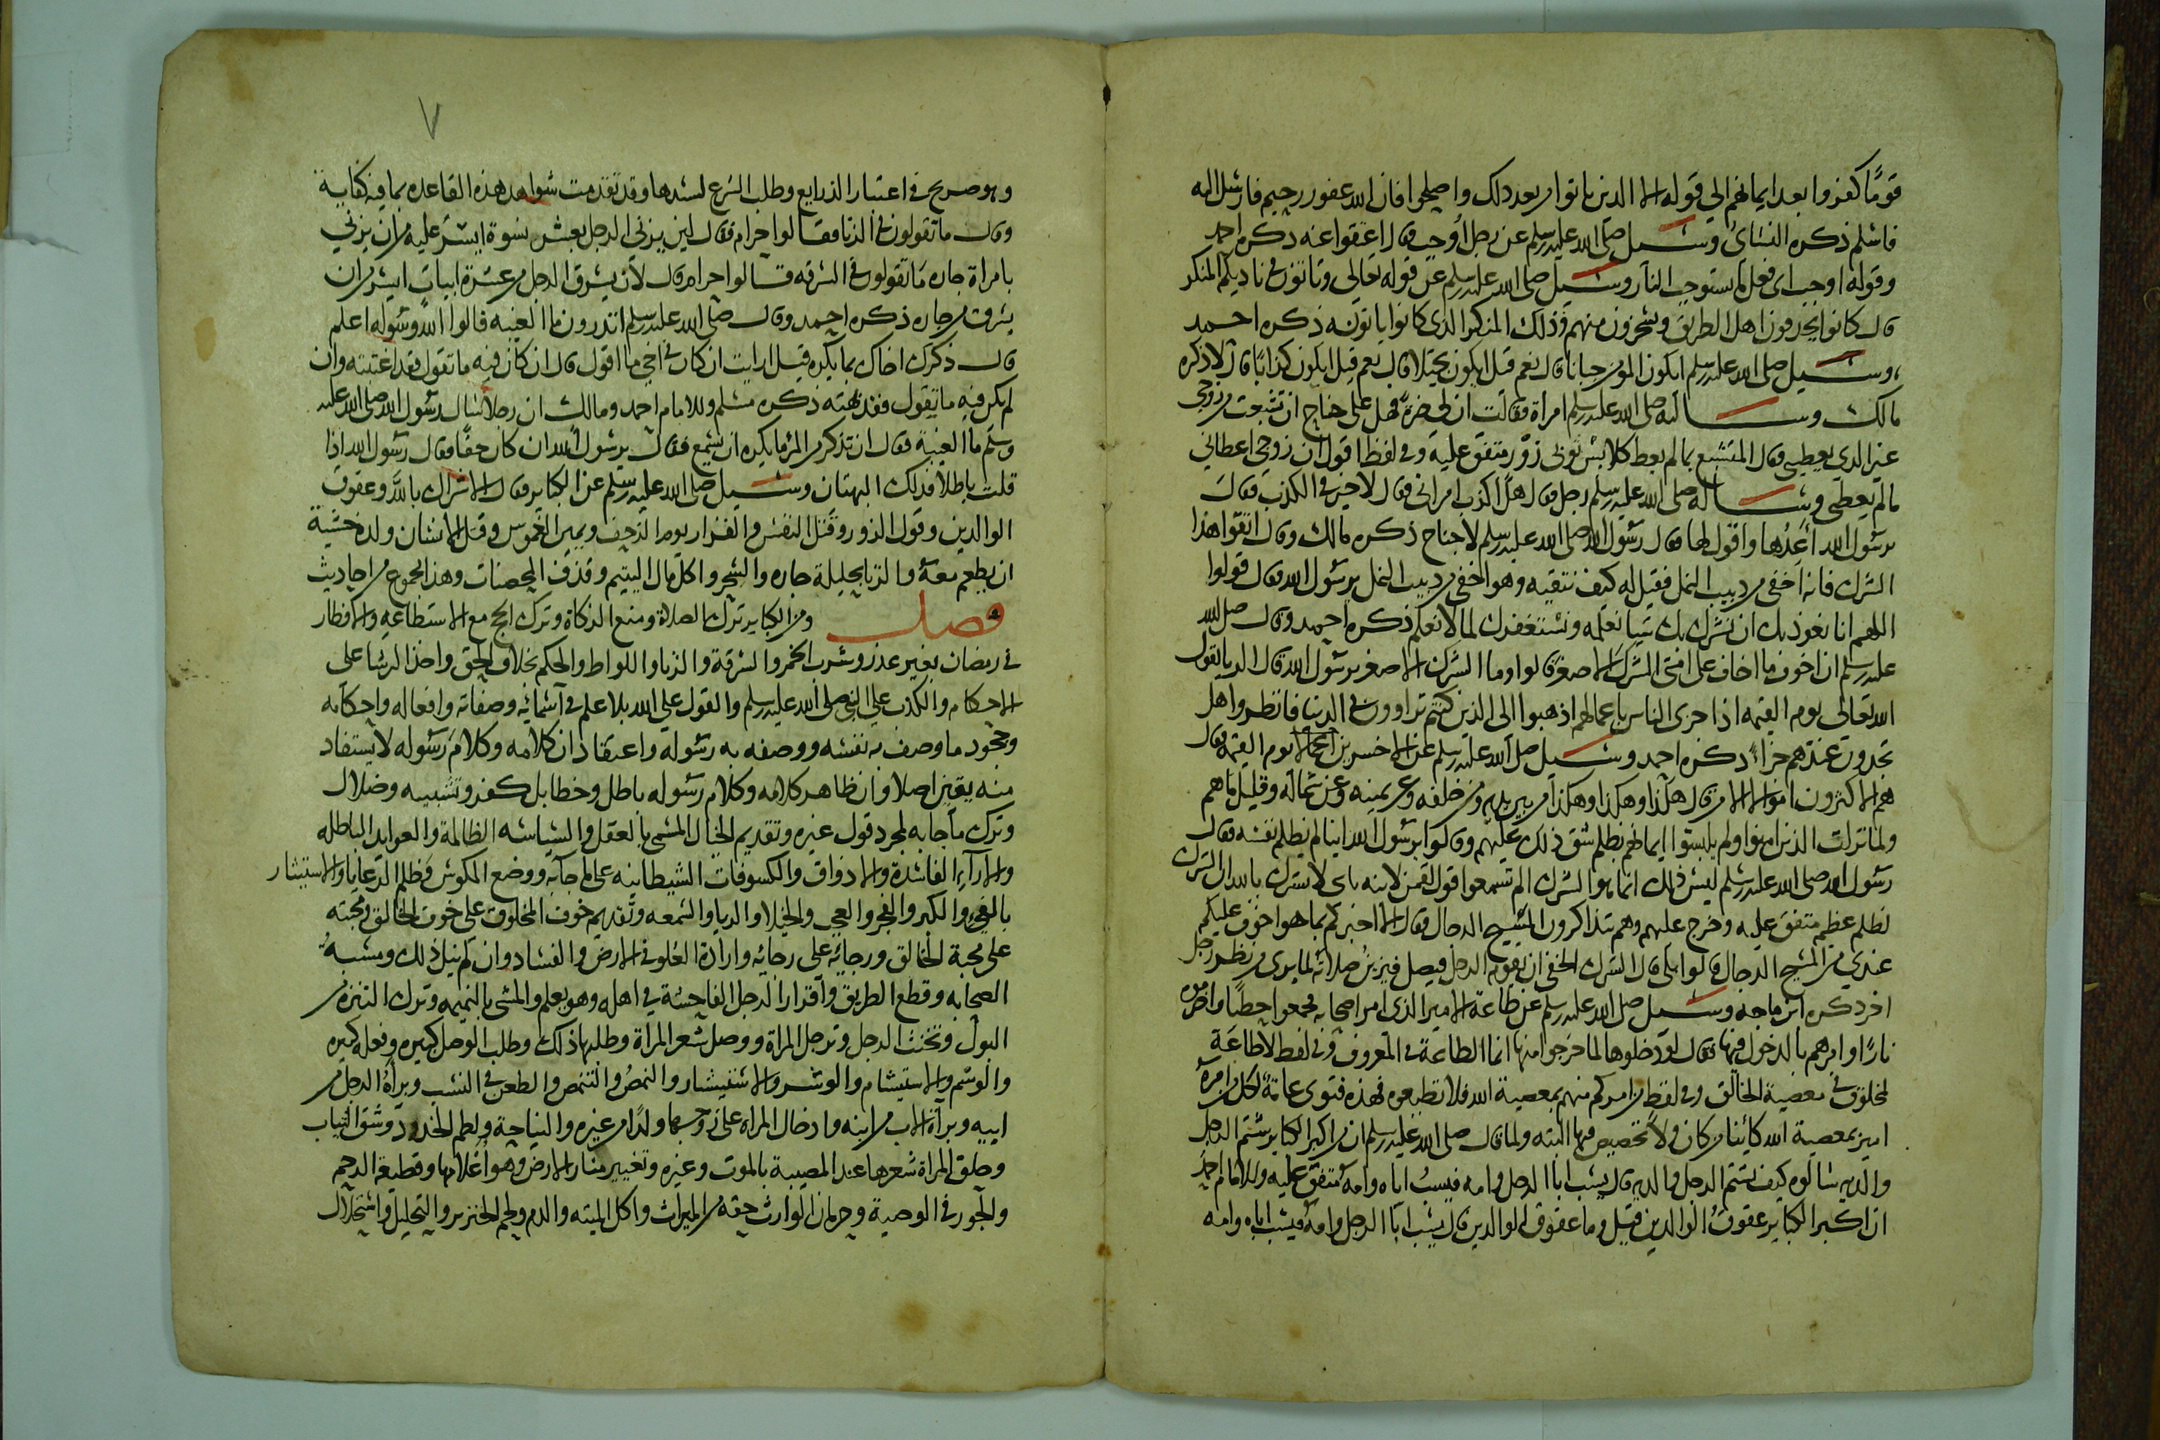 قومًا كفروا بعد ايمانهم الي قوله الا الذين تابوا من بعد ذلك واصلحوا فان الله غفور رحيم فارسل اليه
فاسلم ذكره النسائ وسئل صلى الله عليه وسلم عن رجل أوجب فقال اعتقوا عنه ذكره احمد
وقوله اوجب اى فعل ما يستوجب النار وسئل صلى الله عليه وسلم عن قوله تعالى وتاتون في ناديكم المنكر
قال كانوا يخذفون اهل الطريق ويسخرون منهم فذلك المنكر الذى كانوا ياتونه ذكره احمد
وسئل صلى الله عليه وسلم ايكون المومن جبانا قال نعم قيل ايكون بخيلا قال نعم قيل ايكون كذابا قال لا ذكره
مالك وسالته صلى الله عليه وسلم امراة فقالت ان لى ضرة فهل على جناح ان تشبعت من زوجى
غير الذي يعطينى فقال المتشبع بما لم يعط كلابس ثوبى زور متفق عليه وفى لفظ اقول ان زوجى اعطاني
ما لم يعطنى وساله صلى الله عليه وسلم رجل فقال هل اكذب امراتى فقال لا خير فى الكذب فقال
يرسول الله أعدها واقول لها فقال رسول الله صلى الله عليه وسلم لا جناح ذكره مالك وقال اتقوا هذا
الشرك فانه اخفى من دبيب النمل فقيل له كيف نتقيه وهو اخفى من دبيب النمل يرسول الله فقال قولوا
اللهم انا نعوذ بك ان نشرك بك شيا نعلمه ونستغفرك لما لا نعلم ذكره احمد وقال صلى الله
عليه وسلم ان اخوف ما اخاف على امتى الشرك الاصغر قالوا وما الشرك الاصغر يرسول الله قال الريا يقول
الله تعالى يوم القيمة اذا جزى الناس باعمالهم اذهبوا الى الذين كنتم تراوون فى الدنيا فانظروا هل
تجدون عندهم جزاء ذكره احمد وسئل صلى الله عليه وسلم عن الاخسرين اعمالا يوم القيمة فقال
هم الاكثرون اموالا الا من قال هكذا وهكذا وهكذا من بين يديه ومن خلفه وعن يمينه وعن شماله وقليل ما هم
ولما نزلت الذين امنوا ولم يلبسوا ايمانهم بظلم شق ذلك عليهم وقالوا يرسول الله اينا لم يظلم نفسه فقال
رسول الله صلى الله عليه وسلم ليس ذلك انما هوا الشرك الم تسمعوا قول لقمن لابنه يابنى لا تشرك بالله ان الشرك
لظلم عظيم متفق عليه وخرج عليهم وهم يتذاكرون المسيح الدجال فقال الا اخبركم بما هوا اخوف عليكم
عندي من المسيح الدجال قالوا بلى قال الشرك الخفى ان يقوم الرجل فيصلى فيزين صلاته لما يرى من نظر رجل
اخر ذكره ابن ماجه وسئل صلى الله عليه وسلم عن طاعة الامير الذى امر اصحابه فجمعوا حطبًا واضرموه
نارًا وامرهم بالدخول فيها فقال لو دخلوها لما خرجوا منها انما الطاعة فى المعروف وفى لفظ لا طاعة
لمخلوق فى معصية الخالق وفى لفظ من امركم منهم بمعصية الله فلا تطيعوه فهذه فتوى عامة لكل من امره
امير بمعصية الله كائنا من كان ولا تخصيص فيها البته ولما قال صلى الله عليه وسلم ان من اكبر الكبائر شتم الرجل
والديه سالوه كيف يشتم الرجل والديه قال يسب ابا الرجل وامه فيسب اباه وامه متفق عليه وللامام احمد
ان اكبر الكباير عقوق الوالدين قيل وما عقوق الوالدين قال يسب ابا الرجل وامه فيسب اباه وامه
٧
وهو صريح فى اعتبار الذرايع وطلب الشرع لسدها وقد تقدمت شواهد هذه القاعدة بما فيه كفاية
وقال ما تقولون فى الزنا فقالوا حرام فقال لان يزنى الرجل بعشر نسوة ايسر عليه من ان يزني
بامراة جاره ما تقولون فى السرقة قالوا حرام قال لأن يسرق الرجل من عشرة ابيات ايسر من ان
يسرق من جاره ذكره احمد وقال صلى الله عليه وسلم اتدرون ما الغيبه قالوا الله ورسوله اعلم
قال ذكرك اخاك بما يكره قيل ارايت ان كان فى اخى ما اقول قال ان كان فيه ما تقول فقد اغتبته وان
لم يكن فيه ما تقول فقد بهته ذكره مسلم وللامام احمد ومالك ان رجلا سال رسول الله صلى الله عليه
وسلم ما الغيبة فقال ان تذكر من المرء ما يكره ان يسمع فقال يرسول الله ان كان حقًا فقال رسول الله اذا
قلت باطلا فذلك البهتان وسئل صلى الله عليه وسلم عن الكباير فقال الاشراك بالله وعقوق
الوالدين وقول الزور وقتل النفس والفرار يوم الزحف ويمين الغموس وقتل الانسان ولده خشية
ان يطعم معه والزنا بحليلة جاره والسحر واكل مال اليتيم وقذف المحصنات وهذا مجموع من احاديث
فصل ومن الكباير ترك الصلاة ومنع الزكاة وترك الحج مع الاستطاعة والافطار
فى رمضان بغير عذر وشرب الخمر والسرقة والزنا واللواط والحكم بخلاف الحق واخذ الرشا على
الاحكام والكذب على النبى صلى الله عليه وسلم والقول على الله بلا علم فى اسمائه وصفاته وافعاله واحكامه
وجحود ما وصف به نفسه ووصفه به رسوله واعتقاد ان كلامه وكلام رسوله لا يستفاد
منه يقين اصلا وان ظاهر كلامه وكلام رسوله باطل وخطا بل كفر وتشبيه وضلال
وترك ما جا به لمجرد قول غيره وتقديم الخيال المسمى بالعقل والسياسه الظالمة والعوايد الباطله
والآراء الفاسدة والاذواق والكشوفات الشيطانيه على ما جآبه ووضع المكوس وظلم الرعايا والاستيثار
بالفيء والكبر والفخر والعجب والخيلا والريا والسمعه وتقديم خوف المخلوق على خوف الخالق ومحبته
على محبة الخالق ورجائه على رجائه وارادة العلو فى الارض والفساد وان لم ينل ذلك ومسبة
الصحابه وقطع الطريق واقرار الرجل الفاحشة في اهله وهو يعلم والمشى بالنميمه وترك التنزه من
البول وتخنث الرجل وترجل المراة ووصل شعر المراة وطلبها ذلك وطلب الوصل كبيره وفعله كبيره
والوشم والاستيشام والوشر والاستيشار والنمص والتنمص والطعن فى النسب وبراة الرجل من
ابيه وبراة الاب من ابنه وادخال المراه على زوجها ولدًا من غيره والنياحة ولطم الخدود وشق الثياب
وحلق المراة شعرها عند المصيبة بالموت وغيره وتغيير منار الارض وهو أعلامها وقطيعة الرحم
والجور فى الوصية وحرمان الوارث حقه من الميراث واكل الميته والدم ولحم الخنزير والتحليل واستحلال